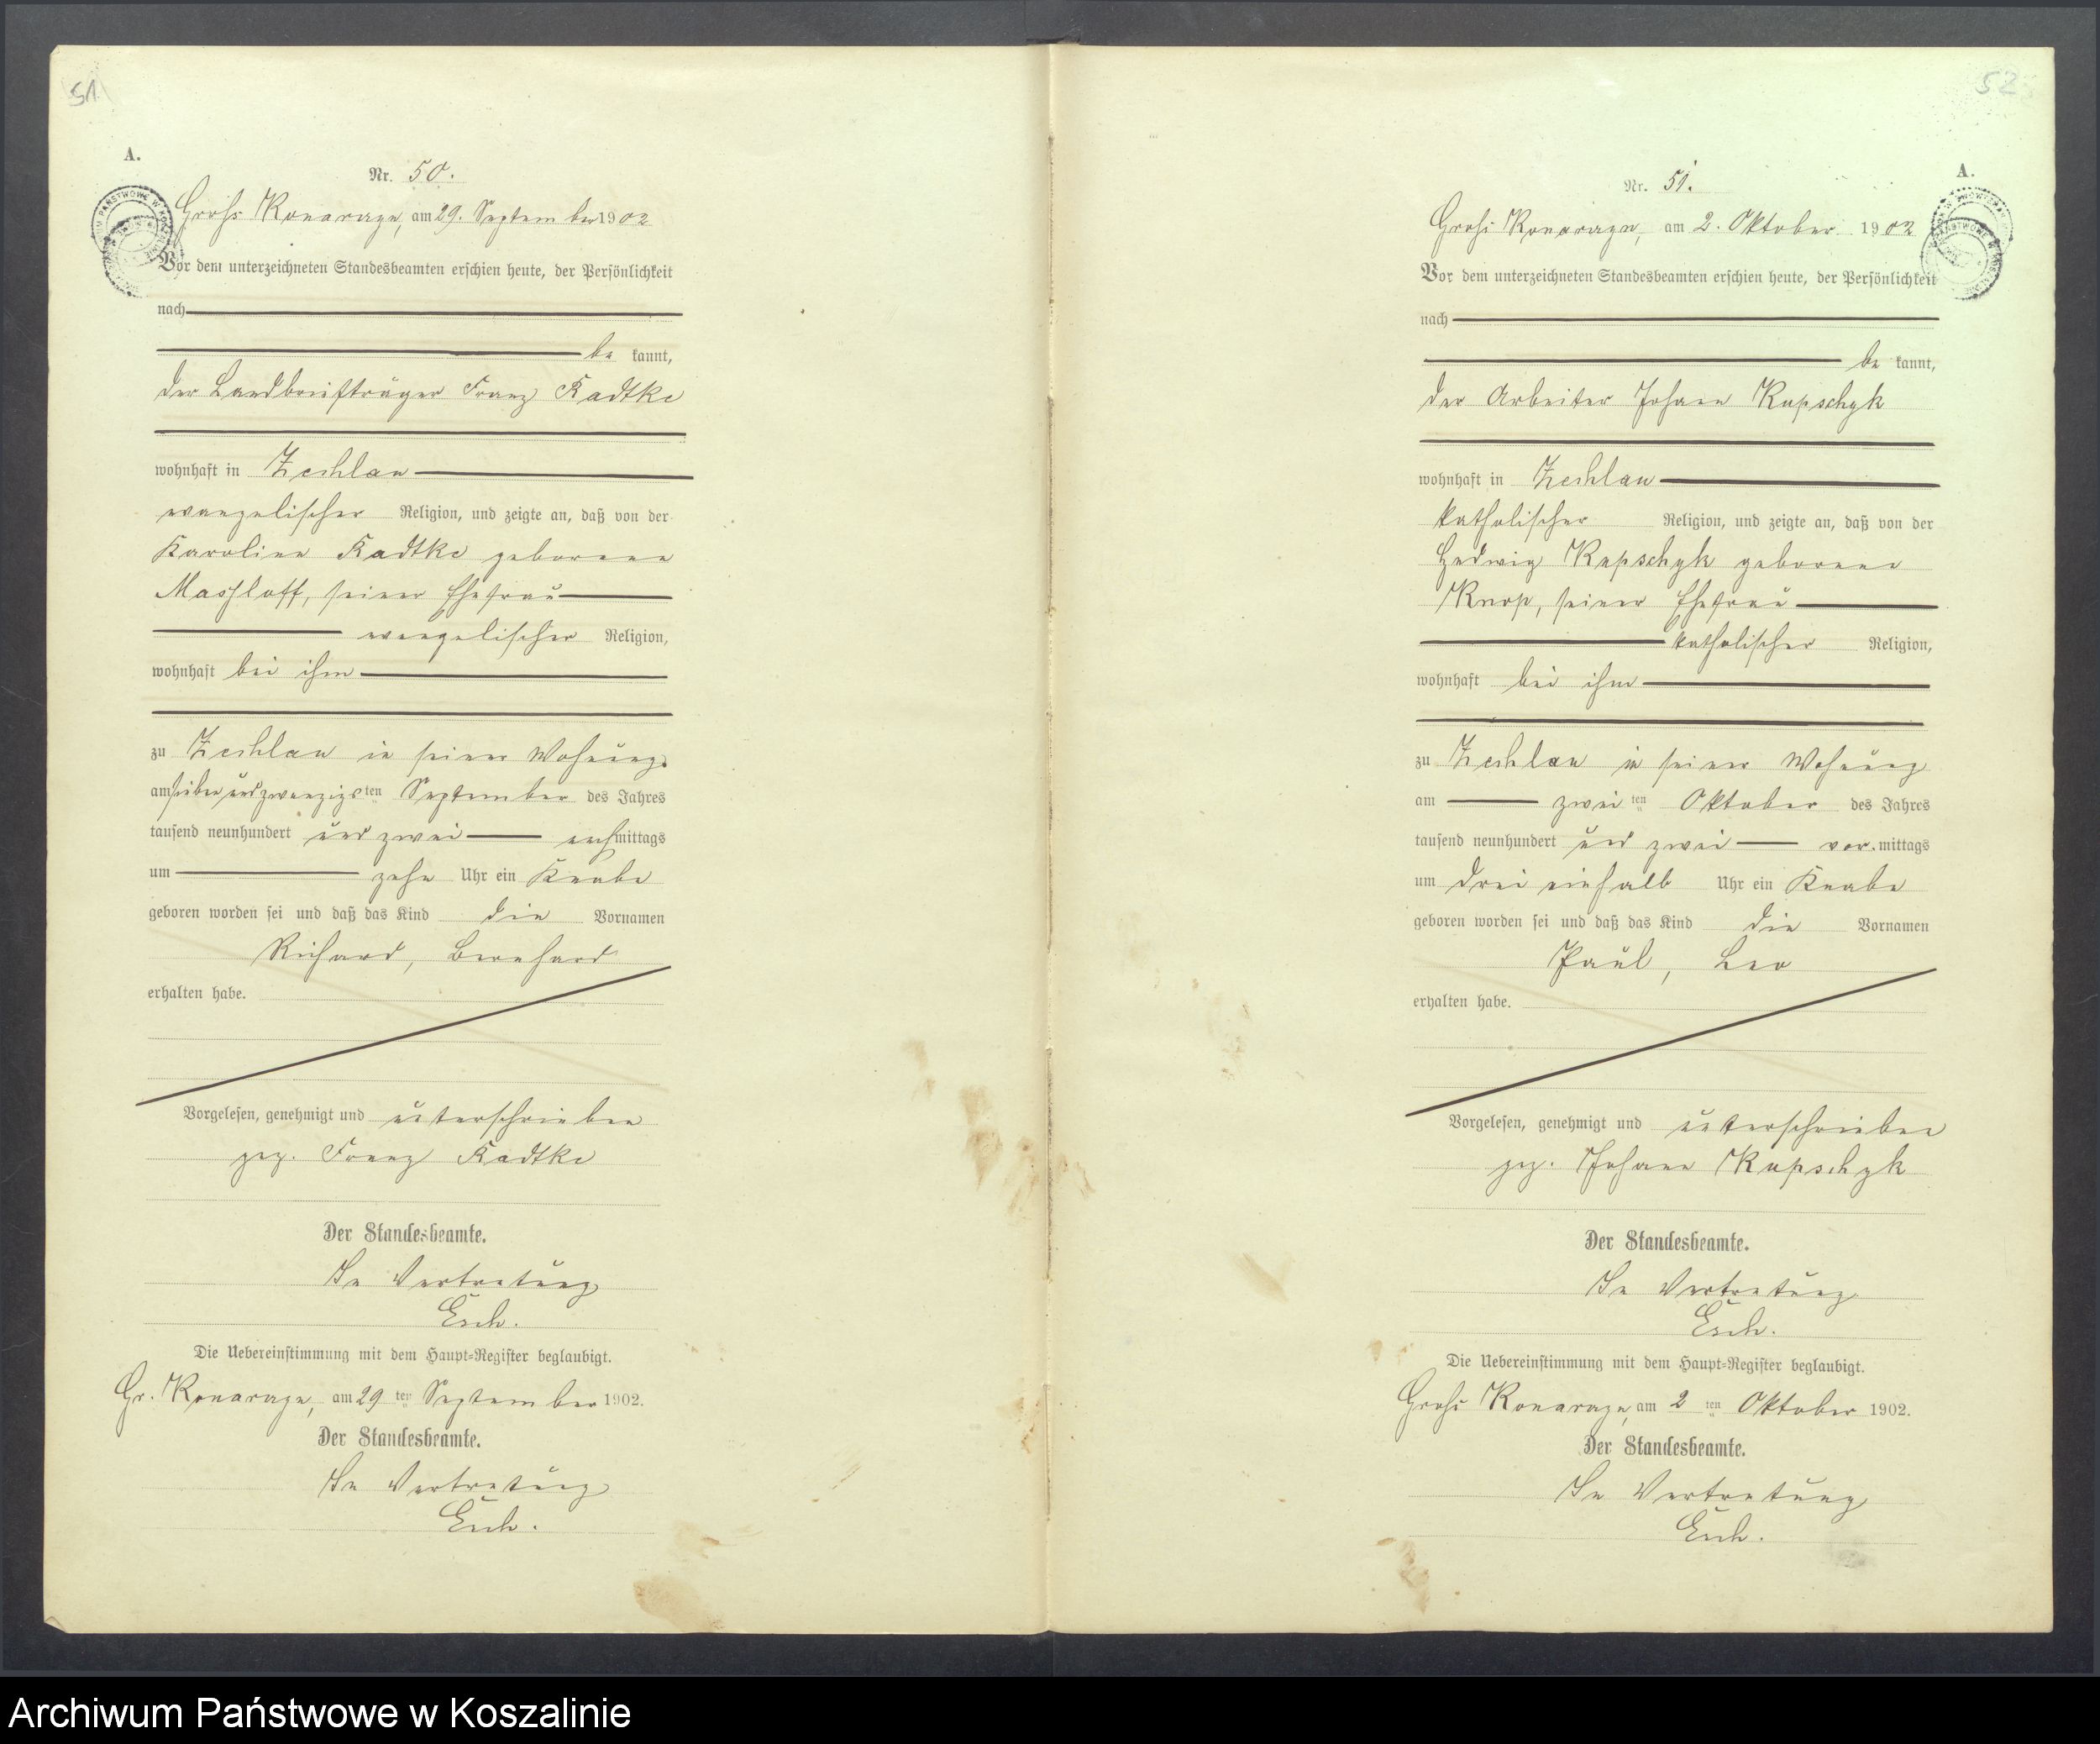 51
A.
Nr. 50.
Groß Konarzyn, am 29. September 1902
Vor dem unterzeichneten Standesbeamten erschien heute, der Persönlichkeit
nach
be kannt,
der Landbriefträger Franz Radtke
wohnhaft in Zechlau
evangelischer Religion, und zeigte an, daß von der
Karoline Radtke geborene
Massloff, seiner Ehefrau
evangelischer Religion,
wohnhaft bei ihm
zu Zechlau in seiner Wohnung
am sieben und zwanzigsten September des Jahres
tausend neunhundert und zwei nachmittags
um zehn Uhr ein Knabe
geboren worden sei und daß das Kind die Vornamen
Richard, Bernhard
erhalten habe.
Vorgelesen, genehmigt und unterschrieben
gez. Franz Radtke
Der Standesbeamte.
In Vertretung
Esch.
Die Uebereinstimmung mit dem Haupt-Register beglaubigt.
Gr. Konarzyn, am 29 ten September 1902.
Der Standesbeamte.
In Vertretung
Esch.
52
A.
Nr. 51.
Groß Konarzyn, am 2. Oktober 1902
Vor dem unterzeichneten Standesbeamten erschien heute, der Persönlichkeit
nach
be kannt,
der Arbeiter Johann Kupschyk
wohnhaft in Zechlau
katholischer Religion, und zeigte an, daß von der
Hedwig Kupschyk geborene
Knop, seiner Ehefrau
katholischer Religion,
wohnhaft bei ihm
zu Zechlau in seiner Wohnung
am zwei ten Oktober des Jahres
tausend neunhundert und zwei vor.mittags
um drei einhalb Uhr ein Knabe
geboren worden sei und daß das Kind die Vornamen
Paul, Leo
erhalten habe.
Vorgelesen, genehmigt und unterschrieben
gez. Johann Kupschyk
Der Standesbeamte.
In Vertretung
Esch.
Die Uebereinstimmung mit dem Haupt-Register beglaubigt.
Groß Konarzyn, am 2 ten Oktober 1902.
Der Standesbeamte.
In Vertretung
Esch.
Archiwum Państwowe w Koszalinie